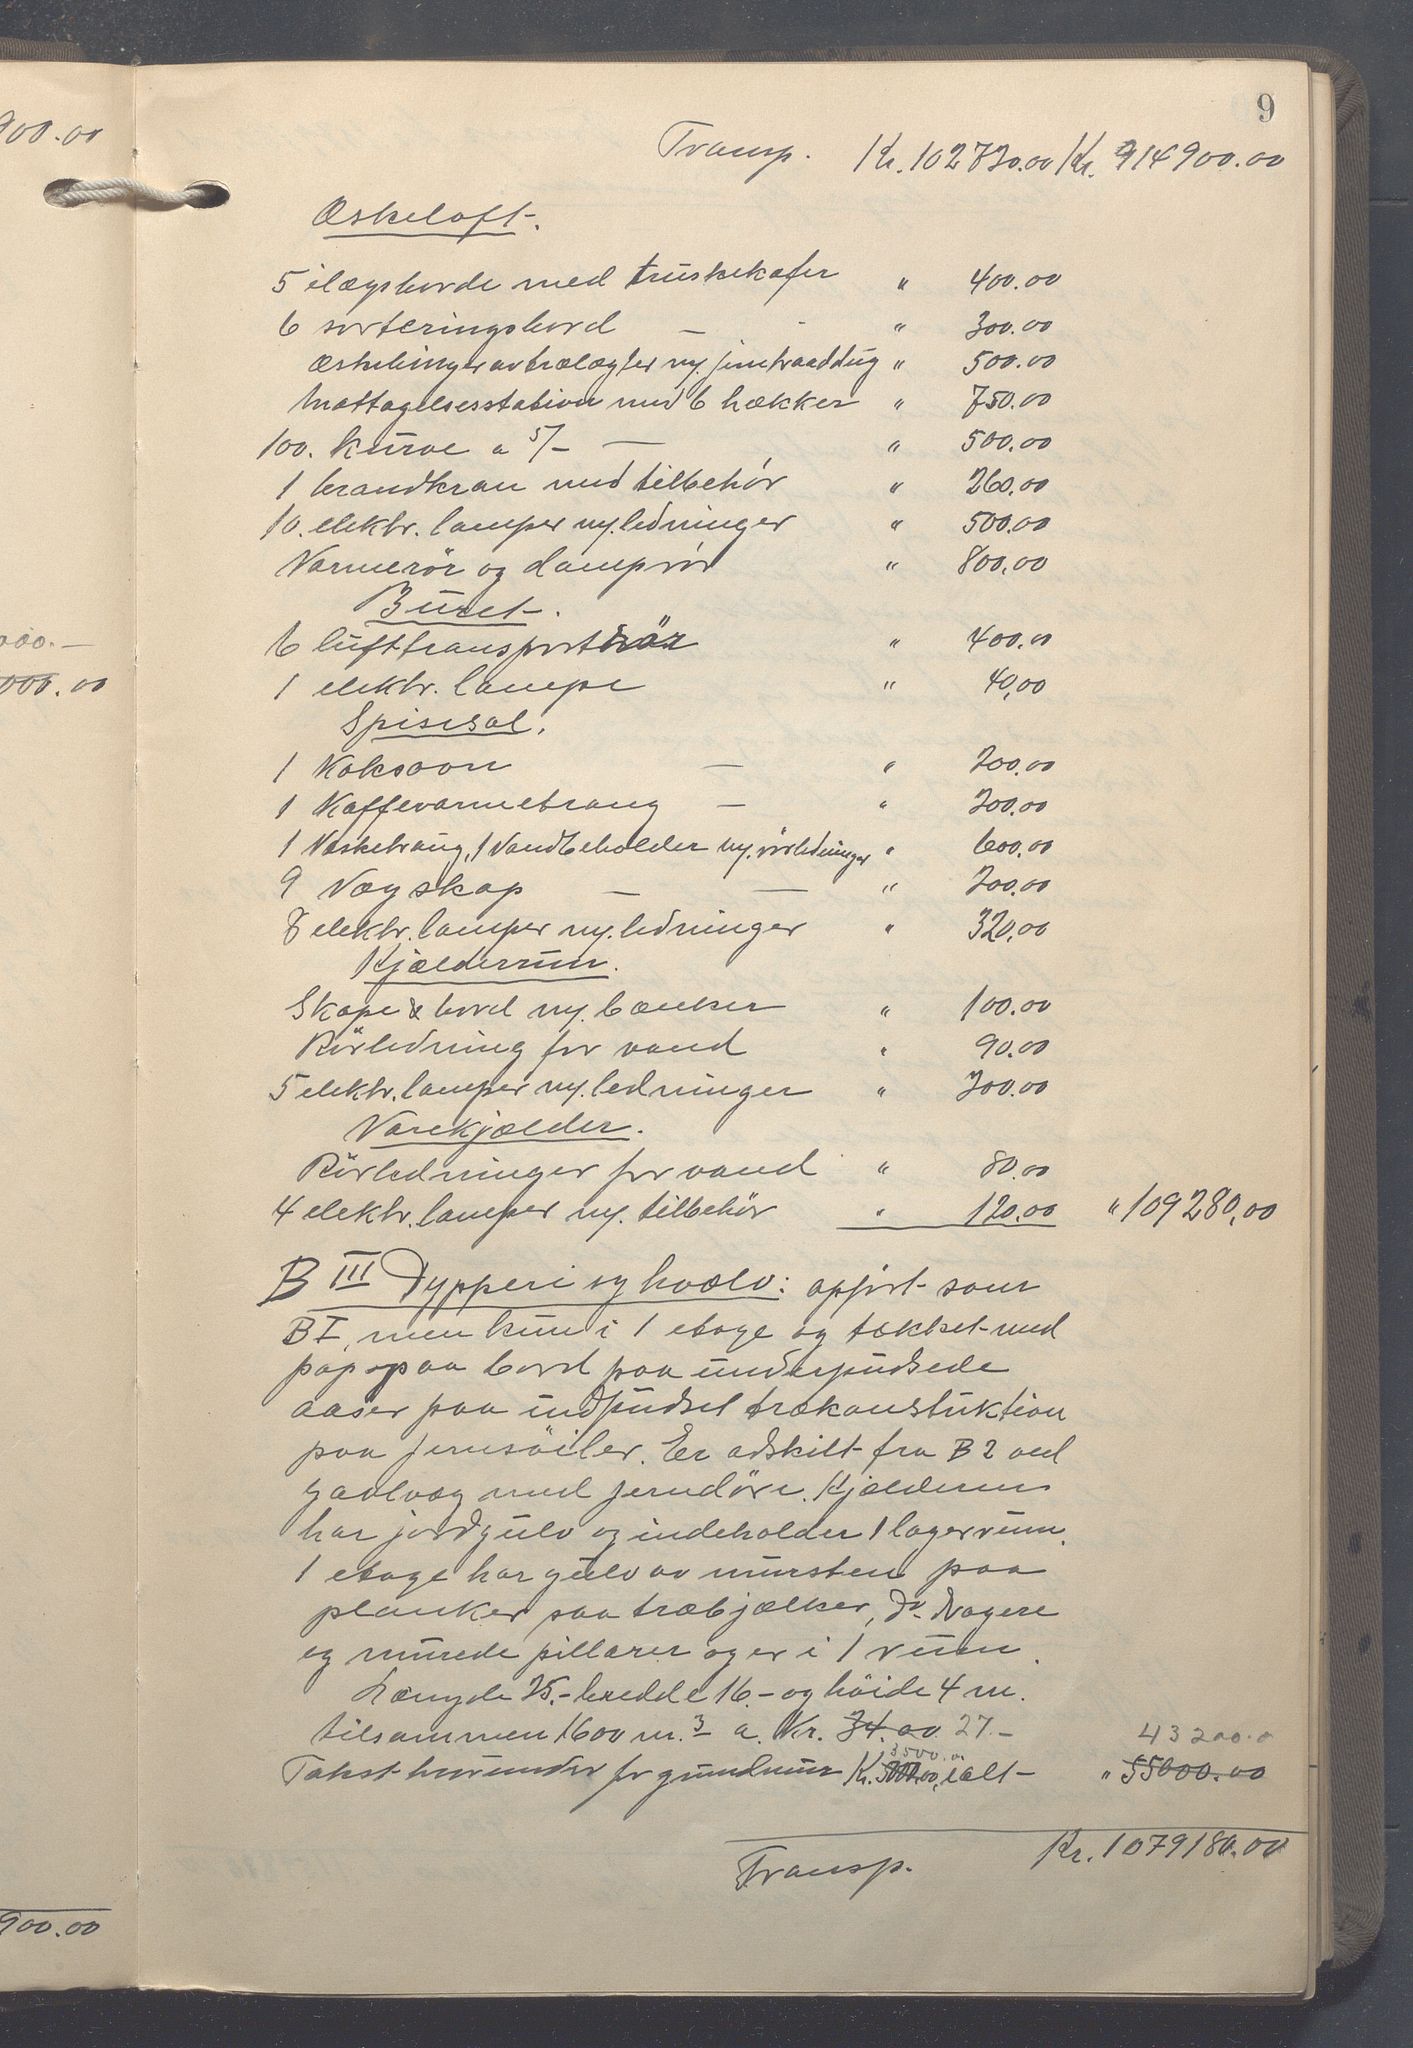 900.00
000.—
000.00
900.00
9
Transp. Kr. 102720.00 Kr. 914900.00
Æskeloft.
5 ilægsborde med truskekafer " 400.00
6 sorteringsbord — - " 300.00
Æskebinger av trælægter m/. jerntraaddug " 500.00
Mottagelsesstation med 6 hækker " 750.00
100. kurve a 5/- — " 500.00
1 brandkran med tilbehör " 260.00
10. elektr. lamper m/. ledninger " 500.00
Varmerör og damprör " 800.00
Buret.
6 lufttransportrör " 400.00
1 elektr. lampe " 40,00
Spisesal.
1 Koksovn — " 200.00
1 Kaffevarmetraug — " 200.00
1 Vasketraug, 1 Vandbeholder m/. rörledninger " 600.00
9 Vægskap — — " 200.00
8 elektr. lamper m/. ledninger " 320,00
Kjælderrum.
Skape & bord m/. bænker " 100.00
Rörledning for vand " 90.00
5 elektr. lamper m/. ledninger " 200.00
Varekjælder.
Rörledninger for vand " 80.00
4 elektr. lamper m/. tilbehör " 120.00 " 109280,00
B III Dypperi og hvælv: opfört som
B I, men kun i 1 etage og tækket med
pap paa bord paa underpudsede
aaser paa indpudset trækonstuktion
paa jernsöiler. Er adskilt fra B 2 ved
gavlvæg med jerndöre. Kjælderen
har jordgulv og indeholder 1 lagerrum.
1 etage har gulv av mursten paa
planker paa træbjælker, do. dragere
og murede pillarer og er i 1 rum.
Længde 25.- bredde 16.- og höide 4 m.
tilsammen 1600 m.3 a. Kr. 34.00 27.- 43200.0
3500.00
Takst herunder for grundmur Kr. 5000.00, ialt " 55000.00
Transp. Kr. 1079180.00